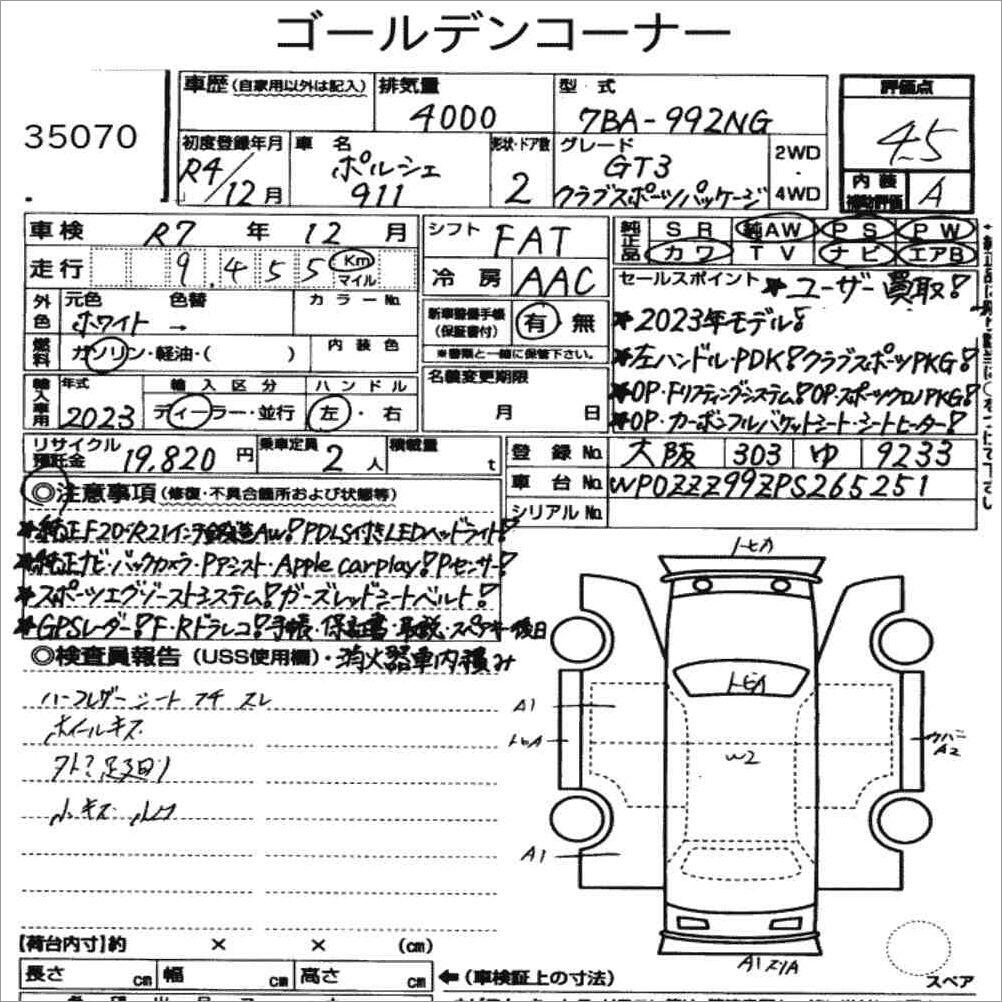 ゴールデンコーナー
35070
車歴(自家用以外は記入)
排気量
4000
型 式
7BA-992NG
評価点
4.5
初度登録年月
R4/12月
車 名
ポルシェ
911
形状・ドア数
2
グレード
GT3
クラブスポーツパッケージ
2WD
・
4WD
内装
補助評価
A
車検 R7 年 12 月
走行 9,455 Km マイル
シフト FAT
冷房 AAC
純正品 SR 純AW PS PW
カワ TV ナビ エアB
外色 元色 色替 カラーNo.
ホワイト →
燃料 ガソリン・軽油・( )
内装色
新車整備手帳
(保証書付)
有・無
※書類と一緒に保管下さい。
セールスポイント ★ユーザー買取!
★2023年モデル!
★左ハンドルPDK!クラブスポーツPKG!
★OP・ドリフティングシステム!OP・スポーツクロノPKG!
★OP・カーボンフルバケットシート・シートヒーター!
輸入車用 年式 輸入区分 ハンドル
2023 ディーラー・並行 左・右
名義変更期限
月 日
リサイクル
預託金
19,820円
乗車定員
2人
積載量
t
登録No. 大阪 303 ゆ 9233
車台No. WP0ZZZ99ZPS265251
シリアルNo.
◎注意事項(修復・不具合箇所および状態等)
★純正F20・R21インチ鍛造AW!PDLS付きLEDヘッドライト!
★純正ナビ・バックカメラ・Pアシスト・Apple carplay!Pセンサー!
★スポーツエグゾーストシステム!ガーズレッドシートベルト!
★GPSレーダー!F・Rドラレコ!手帳・保証書・取説・スペアキー後日
◎検査員報告(USS使用欄)・消火器車内積み
ハーフレザーシート フチ スレ
ホイールキズ
小キズ
トビA
トビA
A1
トビA
W2
A2
A1
A1
スペア
【荷台内寸】約 × × (cm)
長さ cm 幅 cm 高さ cm
←(車検証上の寸法)